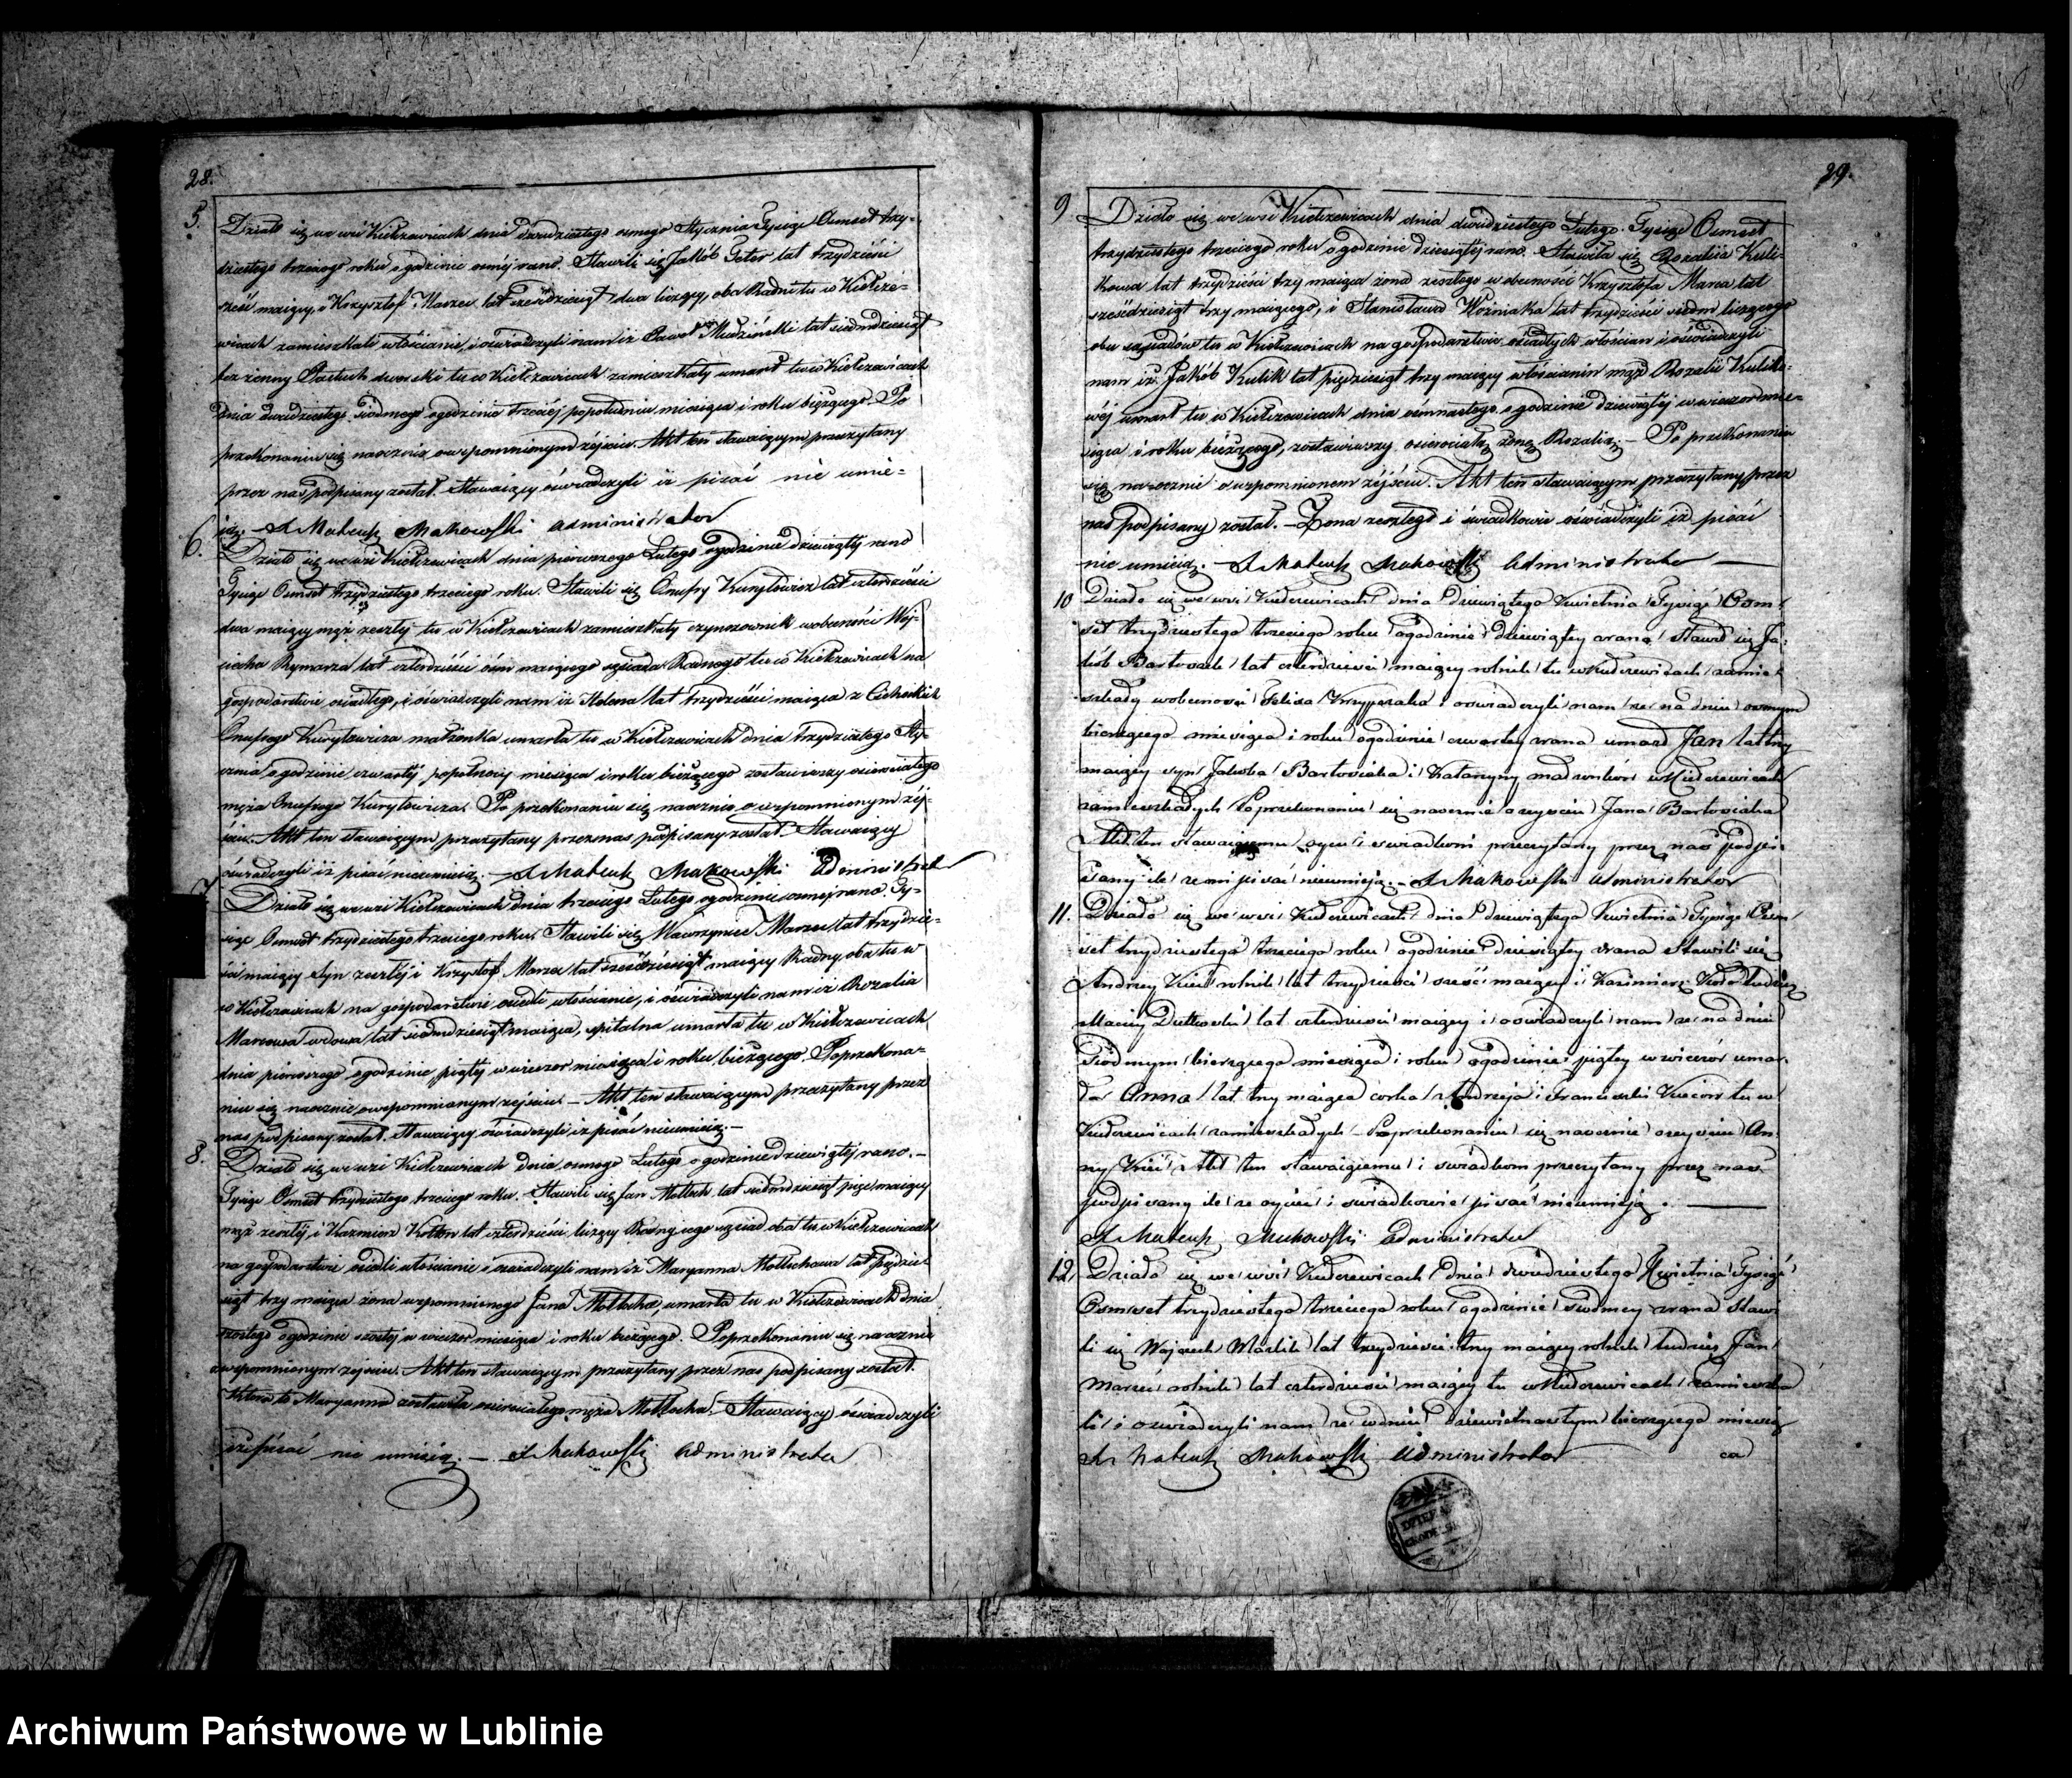 28.
5. Działo się we wsi Kiełczewicach dnia dwudziestego osmego Stycznia Tysiąc Osmset trzy-
dziestego trzeciego roku o godzinie osmej rano. Stawili się Jakób lat trzydzieści
sześć maiący, i Krzysztof Marzec lat sześćdziesiąt dwa liczący, oba Radni tu w Kiełcze-
wicach zamieszkali włościanie, i oświadczyli nam iż Paweł Mudziński lat siedmdziesiąt
bez żenny Pastuch dworski tu w Kiełczewicach zamieszkały umarł tu w Kiełczewicach
dnia dwudziestego siódmego o godzinie trzeciej popołudniu miesiąca i roku bieżącego. Po
przekonaniu się naocznie o wspomnionym zéjściu. Akt ten stawaiącym przeczytany
przez nas podpisany został. Stawaiący oświadczyli iż pisać nie umie-
ią. X Mateusz Makowski administrator
6. Działo się we wsi Kiełczewicach dnia pierwszego Lutego o godzinie dziewiątéj rano
Tysiąc Osmset trzydziestego trzeciego roku. Stawili się Onufry Kuryłowicz lat czterdzieści
dwa maiący mąż zeszłéj tu w Kiełczewicach zamieszkały czynszownik w obecności Woj-
ciecha Rymarza lat czterdzieści ośm maiącego sąsiada Radnego tu w Kiełczewicach na
gospodarstwie osiadłego, i oświadczyli nam iż Helena lat trzydzieści maiąca z Cichockich
Onufrego Kuryłowicza małżonka umarła tu w Kiełczewicach dnia trzydziestego Sty-
cznia o godzinie czwartéj popółnocy miesiąca i roku bieżącego zostawiwszy osierociałego
męża Onufrego Kuryłowicza. Po przekonaniu się naocznie o wspomnionym zéj-
ściu. Akt ten stawaiącym przeczytany przez nas podpisany został. Stawaiący
oświadczyli iż pisać nieumieią. X Mateusz Makowski Administrat
7. Działo się we wsi Kiełczewicach dnia trzeciego Lutego o godzinie osmej rano Ty-
siąc Osmset trzydziestego trzeciego roku. Stawili się Wawrzyniec Marzec lat trzydzie-
ści maiący Syn zeszłéj i Krzysztof Marzec lat sześćdziesiąt maiący Radny oba tu w
w Kiełczewicach na gospodarstwie osiedli włościanie, i oświadczyli nam iż Rozalia
Marcowa wdowa lat siedmdziesiąt maiąca, szpitalna umarła tu w Kiełczewicach
dnia pierwszego o godzinie piątéj w wieczor miesiąca i roku bieżącego. Po przekona-
niu się naocznie o wspomnionym zejściu. – Akt ten stawaiącym przeczytany przez
nas podpisany został. Stawaiący oświadczyli iż pisać nieumieią. –
8. Działo się we wsi Kiełczewicach dnia osmego Lutego o godzinie dziewiątéj rano. –
Tysiąc Osmset trzydziestego trzeciego roku. Stawili się Jan Motłoch lat siedmdziesiąt pięć maiący
mąż zeszłéj i Kazmierz lat czterdzieści liczący Radny iego sąsiad oba tu w Kiełczewicach
na gospodarstwie osiedli włościanie i oświadczyli nam iż Maryanna Motłochowa lat pięćdzie-
siąt trzy maiąca żona wspomnionego Jana Motłocha, umarła tu w Kiełczewicach dnia
szóstego o godzinie szóstéj w wieczor miesiąca i roku bieżącego. Po przekonaniu się naocznie
o wspomnionym zejściu. Akt ten stawaiącym przeczytany przez nas podpisany został.
Która to Maryanna zostawiła osierociałego męża Motłocha. Stawaiący oświadczyli
iż pisać nie umieią. – X Makowski administrator
29.
9 Działo się we wsi Kiełczewicach dnia dwudziestego Lutego Tysiąc Osmset
trzydziestego trzeciego roku o godzinie dziesiątéj rano. Stawiła się Rozalia Kuli-
kowa lat trzydzieści trzy maiąca żona zeszłego w obecności Krzysztofa Marca lat
sześćdziesiąt trzy maiącego, i Stanisława Woźniaka lat trzydzieści siedm liczącego
obu sąsiadów tu w Kiełczewicach na gospodarstwie osiadłych włościan i oświadczyli
nam iż Jakób Kulik lat pięćdziesiąt trzy maiący włościanin mąż Rozalii Kuliko-
wéj umarł tu w Kiełczewicach dnia ośmnastego o godzinie dziewiątéj w wieczor mie-
siąca i roku bieżącego, zostawiwszy osierociałą żonę Rozalią. – Po przekonaniu
się naocznie o wspomnionem zéjściu. Akt ten stawaiącym przeczytany przez
nas podpisany został. – Żona zeszłego i świadkowie oświadczyli iż pisać
nie umieią. – X Mateusz Makowski Administrator
10 Działo się we wsi Kiełczewicach dnia dziewiątego Kwietnia Tysiąc Osm-
set trzydziestego trzeciego roku o godzinie dziewiątey zrana stawił się Ja-
kób Bartosiak lat czterdzieści maiący rolnik tu w Kiełczewicach zamie-
szkały w obecności Felixa i oswiadczyli nam że na dniu osmym
bierzącego miesiąca i roku o godzinie czwartey zrana umarł Jan lat trzy
maiący syn Jakóba Bartosiaka i Katarzyny małżonków w Kiełczewicach
zamieszkałych Po przekonaniu się naocznie o zeyściu Jana Bartosiaka
Akt ten stawaiącemu oycu i swiadkowi przeczytany przez nas podpi-
sany ile że oni pisać nieumieią. – X Makowski administrator
11. Działo się we wsi Kiełczewicach dnia dziewiątego Kwietnia Tysiąc Osm
set trzydziestego trzeciego roku o godzinie dziesiątey zrana Stawili się
Andrzey rolnik lat trzydzieści sześć maiący i Kazimierz tudzież
Maciey Dutkowski lat czterdzieści maiący i oswiadczyli nam że na dniu
siódmym bierzącego miesiąca i roku o godzinie piątey w wieczór uma-
rła Anna lat trzy maiąca corka Andrzeja i Franciszki tu w
Kiełczewicach zamieszkałych – Po przekonaniu się naocznie o zeyściu An-
ny Akt ten stawaiącemu i swiadkom przeczytany przez nas
podpisany ile że oyciec i swiadkowie pisać nieumieią. –
X Mateusz Makowski Administrator
12, Działo się we wsi Kiełczewicach dnia dwudziestego Kwietnia Tysiąc
Osmset trzydziestego trzeciego roku o godzinie siodmey zrana Stawi-
li się Woyciech lat trzydzieści trzy maiący rolnik tudzież Jan
Marzec rolnik lat czterdzieści maiący tu w Kiełczewicach zamieszka
li i oswiadczyli nam że w dniu dziewietnastym bierzącego miesią
X Mateusz Makowski administrator ca
Archiwum Państwowe w Lublinie